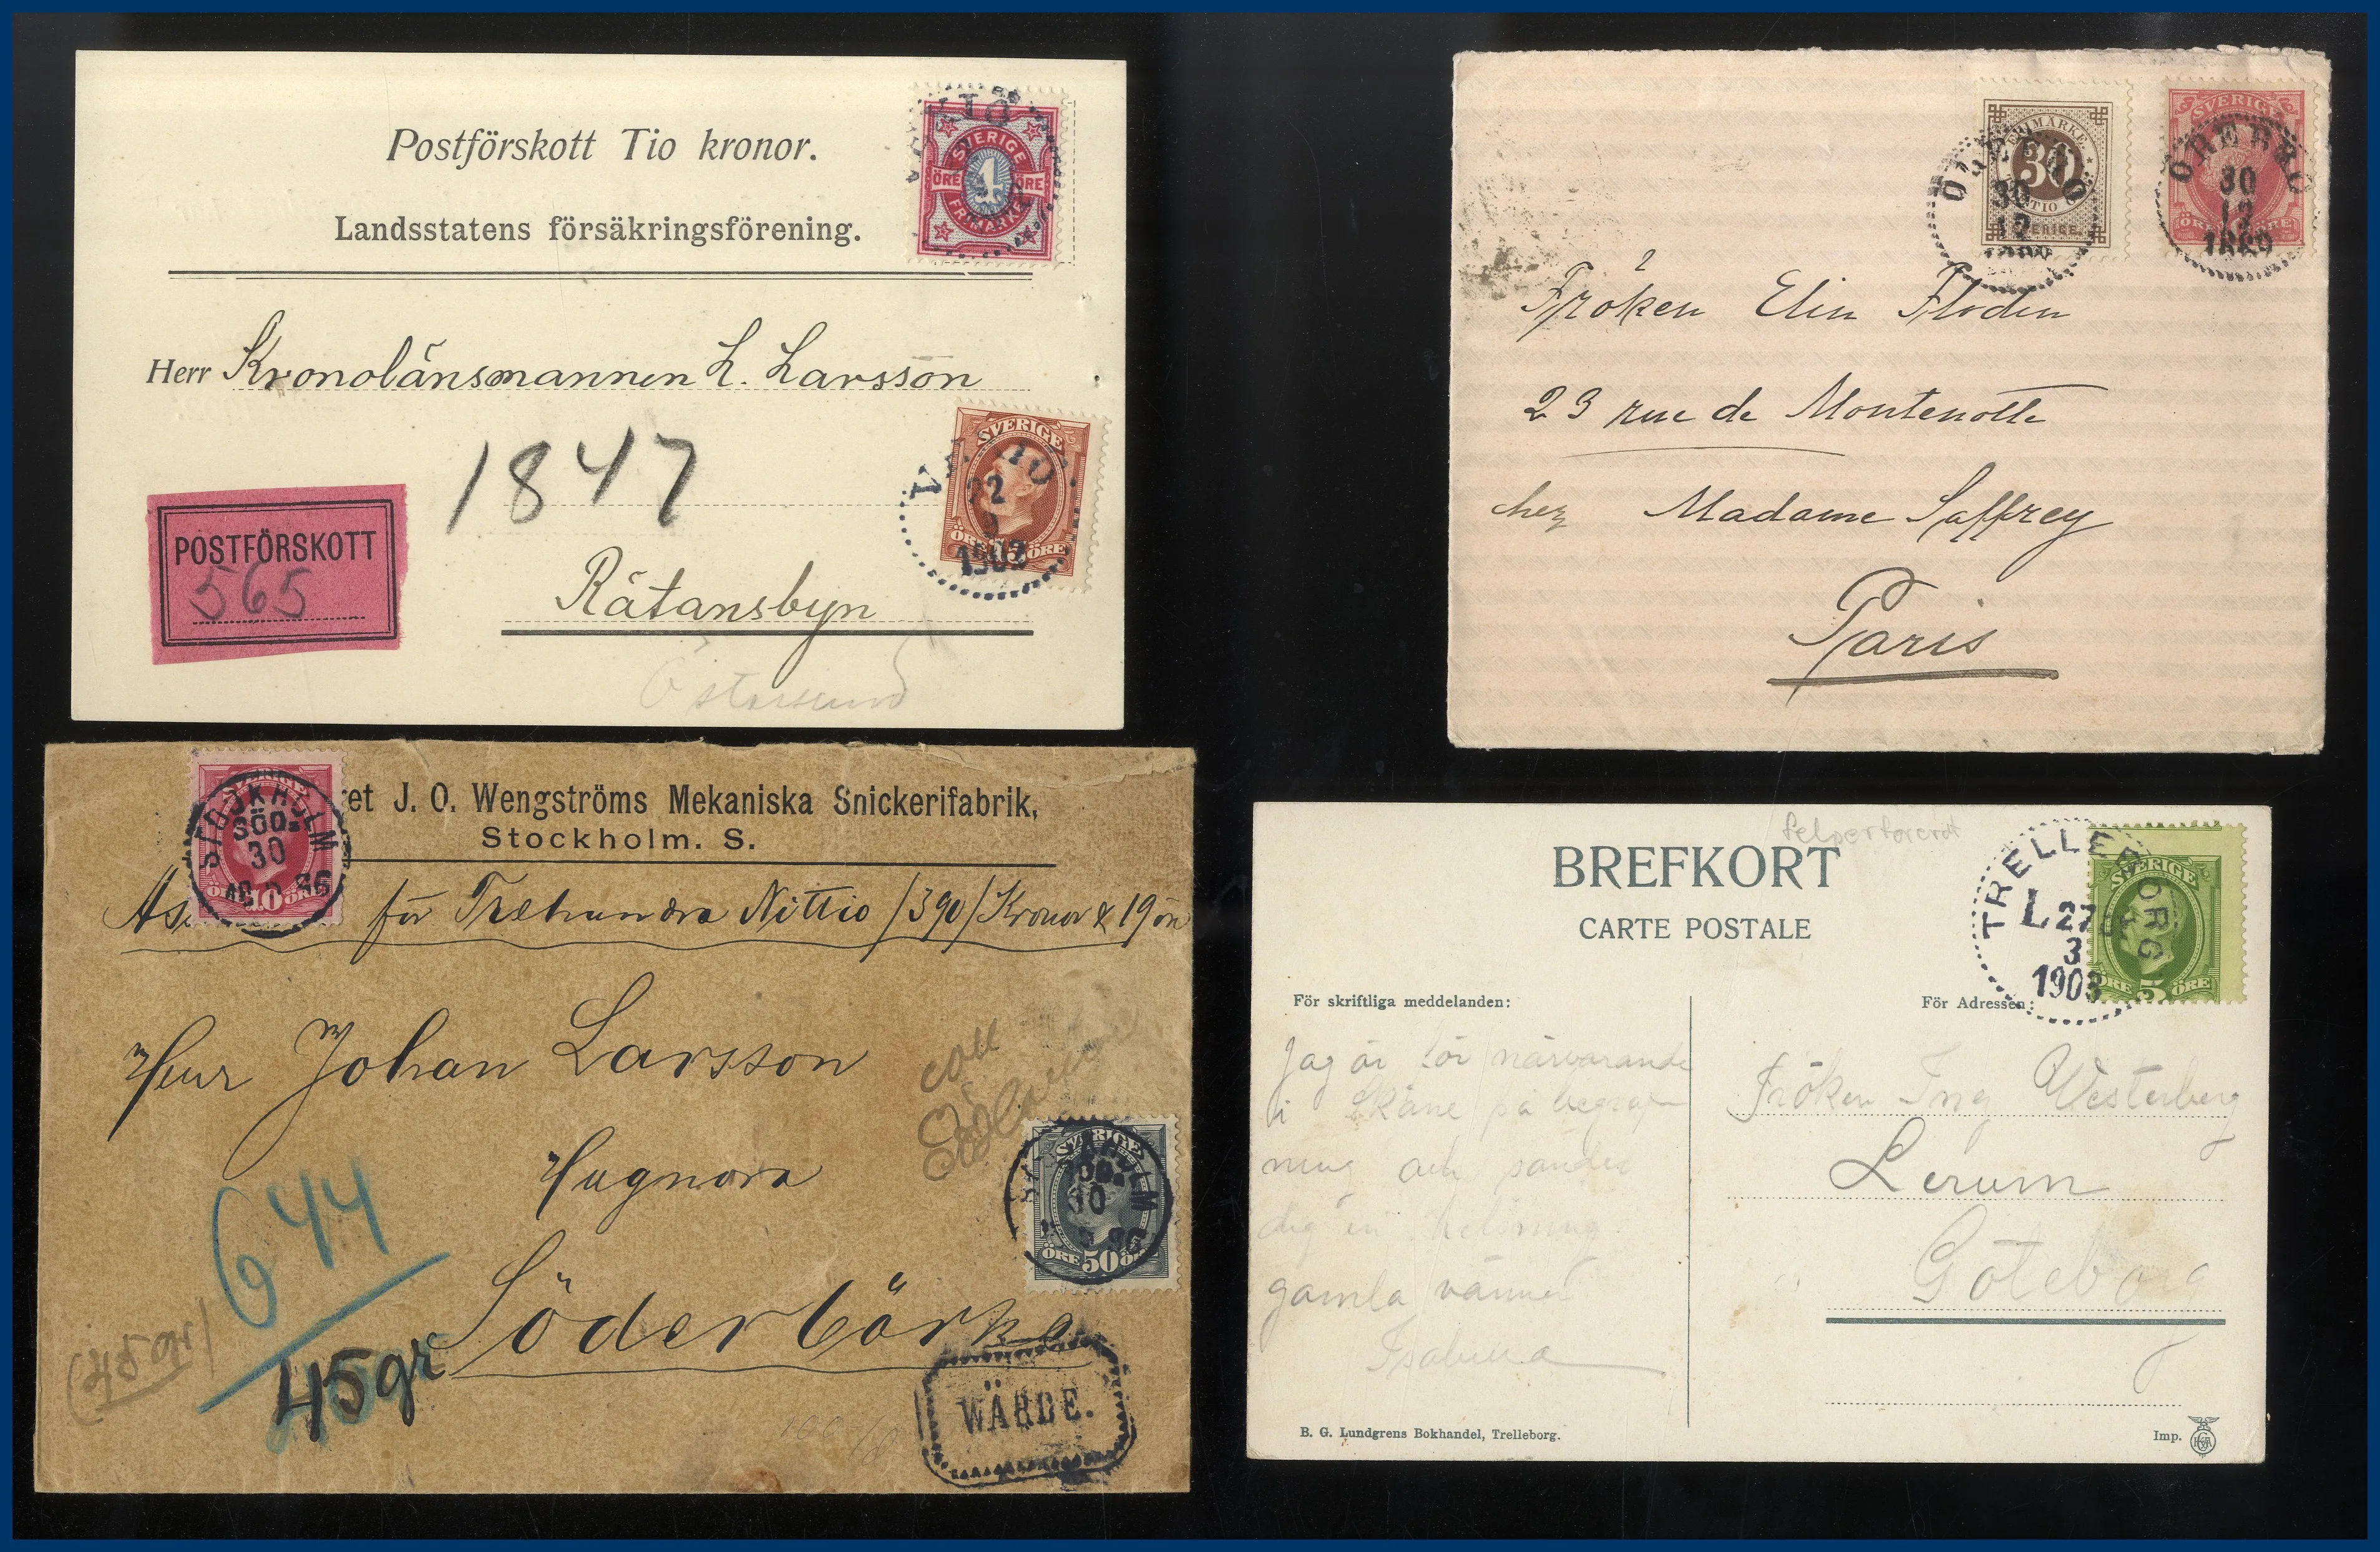 Postförskott Tio kronor.
Landsstatens försäkringsförening.
SVERIGE
ÖRE 4 ÖRE
FRIMÄRKE
Herr Kronolänsmannen L. Larsson
1847
SVERIGE
22
1902
ÖRE ÖRE
POSTFÖRSKOTT
565
Rätansbyn
Östersund
FRIMÄRKE
30
SVERIGE
ÖREBRO
30
12
SVERIGE
ÖREBRO
30
12
1889
Fröken Elin Floden
23 rue de Montenotte
chez Madame Saffrey
Paris
SVERIGE
STOCKHOLM
SÖD.
30
10 ÖRE
et J. O. Wengströms Mekaniska Snickerifabrik,
Stockholm. S.
As. för Trehundra Nittio /390/ Kronor & 19 öre
Herr Johan Larsson
Hagnora
Söderbärke
SVERIGE
30
ÖRE 50 ÖRE
644
45gr
(45gr)
WÄRDE.
BREFKORT
CARTE POSTALE
SVERIGE
ÖRE 5 ÖRE
TRELLEBORG
L 27
3
1903
För skriftliga meddelanden:
För Adressen:
Jag är för närvarande
i Skåne på begraf
ning och sänder
dig en hälsning
gamla vännen
Fröken Westerberg
Lerum
Göteborg
B. G. Lundgrens Bokhandel, Trelleborg.
Imp.